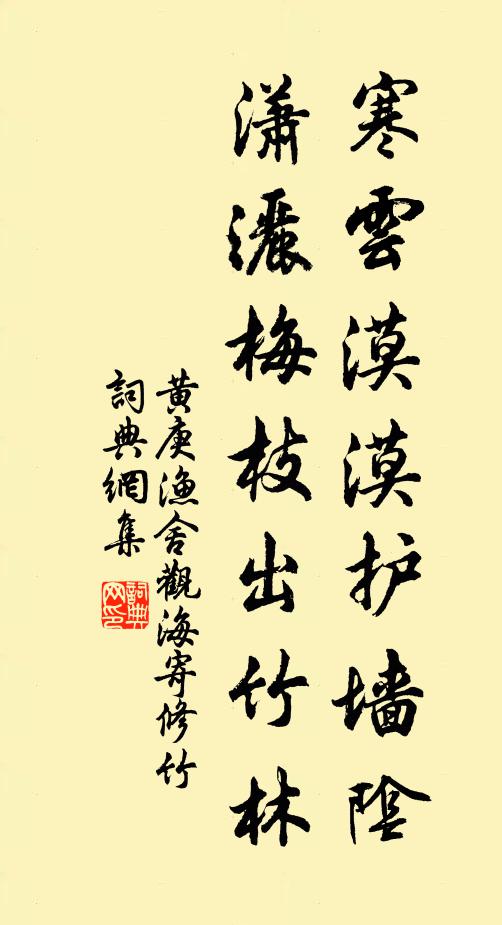 寒雲漠漠护墙陰
瀟灑梅枝出竹林
黄庚漁舍觀海寄修竹
詞典網集
詞典网印